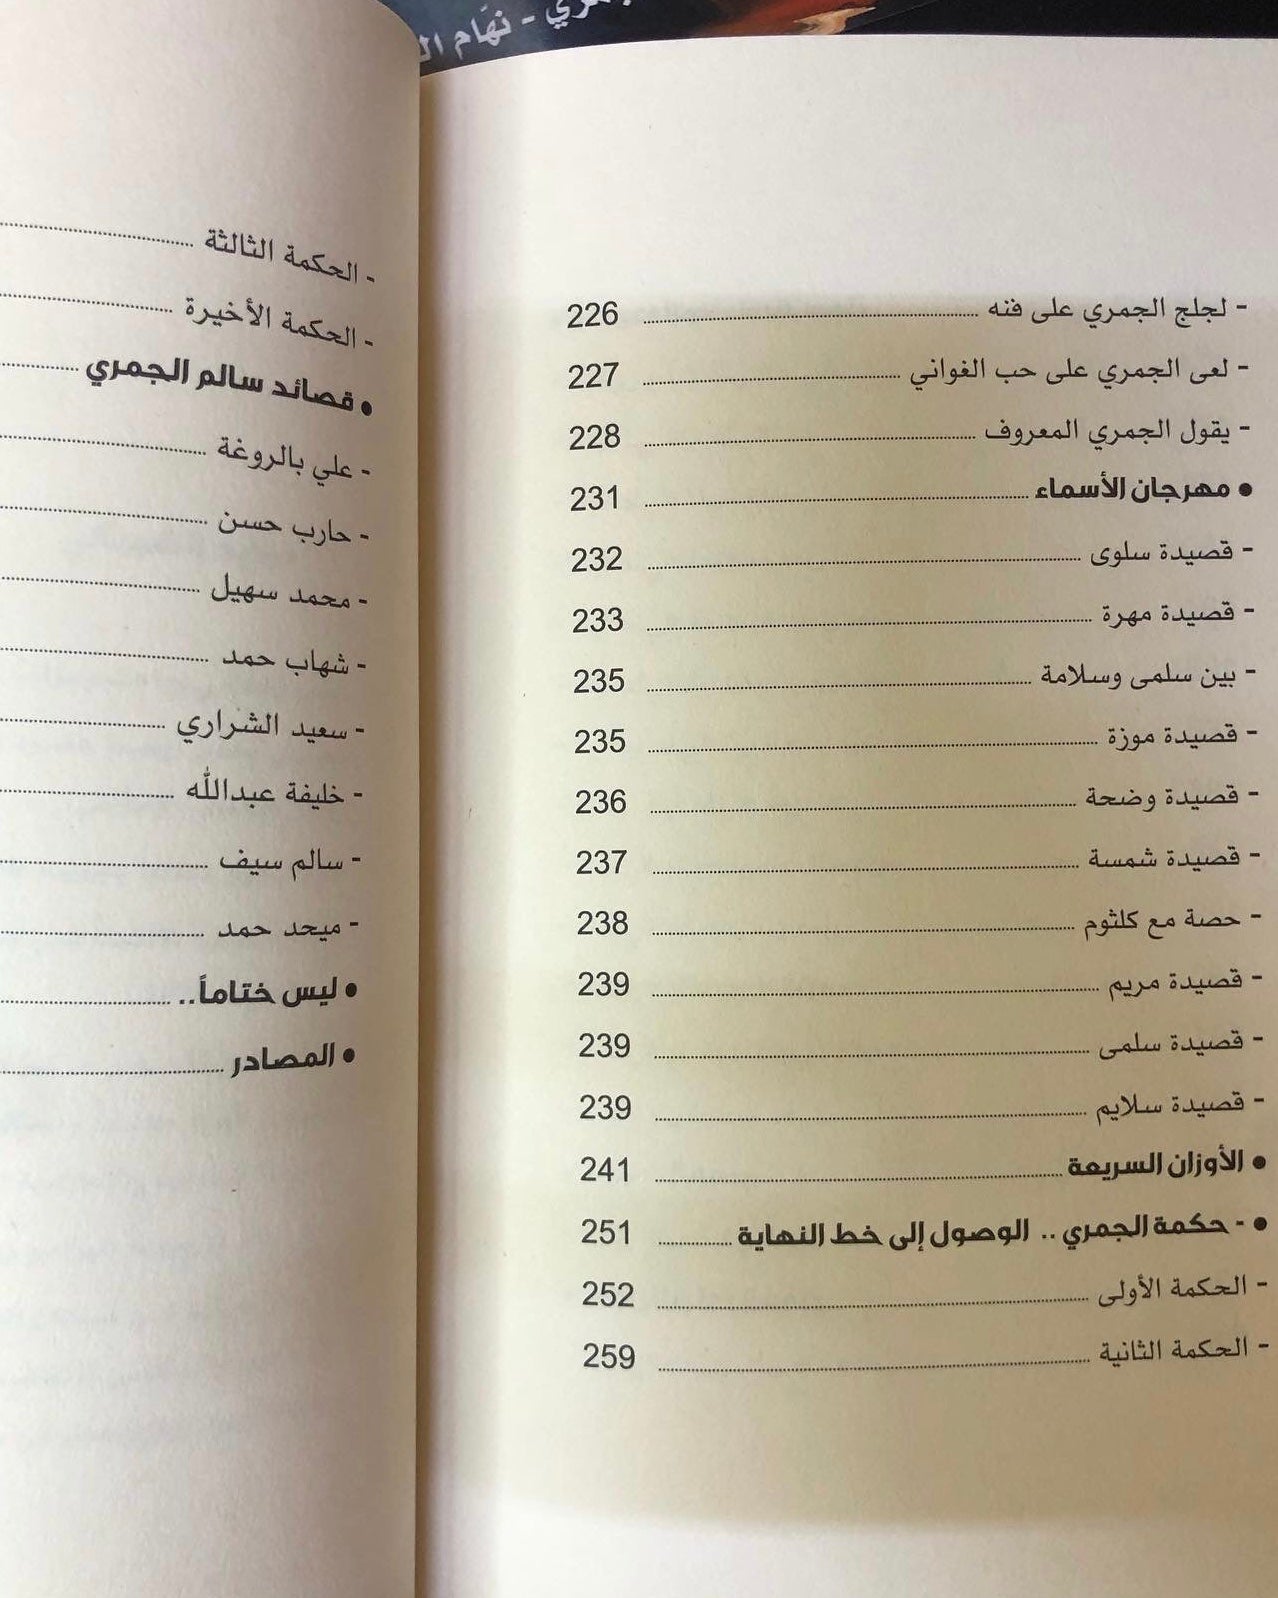 نهّام
- لجلج الجمري على فنه 226
- لعى الجمري على حب الغواني 227
- يقول الجمري المعروف 228
• مهرجان الأسماء 231
- قصيدة سلوى 232
- قصيدة مهرة 233
- بين سلمى وسلامة 235
- قصيدة موزة 235
- قصيدة وضحة 236
- قصيدة شمسة 237
- حصة مع كلثوم 238
- قصيدة مريم 239
- قصيدة سلمى 239
- قصيدة سلايم 239
• الأوزان السريعة 241
• - حكمة الجمري .. الوصول إلى خط النهاية 251
- الحكمة الأولى 252
- الحكمة الثانية 259
- الحكمة الثالثة
- الحكمة الأخيرة
• قصائد سالم الجمري
- علي بالروغة
- حارب حسن
- محمد سهيل
- شهاب حمد
- سعيد الشراري
- خليفة عبدالله
- سالم سيف
- ميحد حمد
• ليس ختاماً..
• المصادر